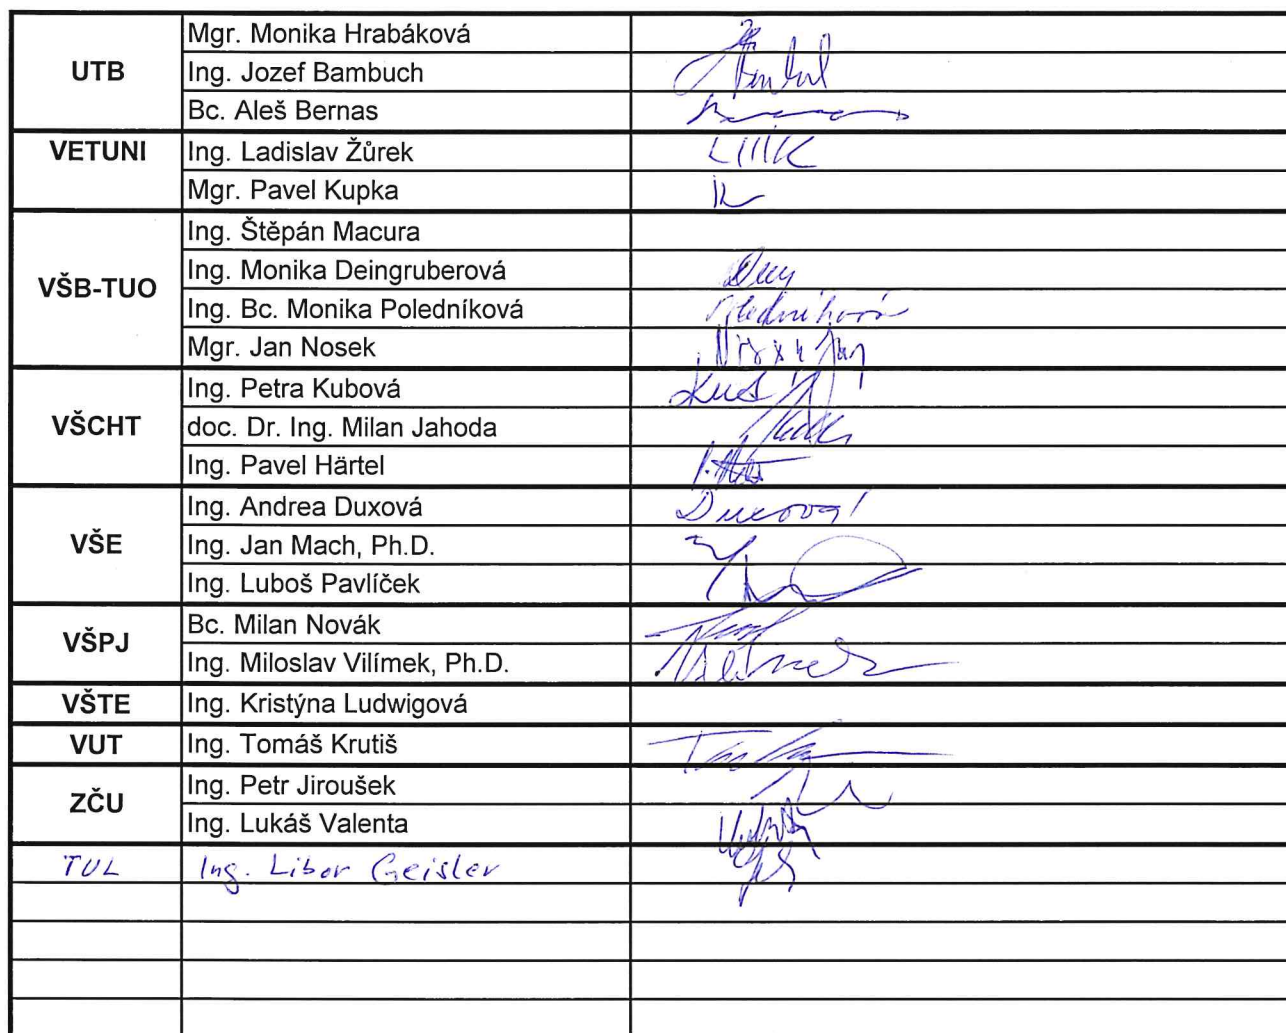 UTB
Mgr. Monika Hrabáková
Ing. Jozef Bambuch
Bc. Aleš Bernas
VETUNI
Ing. Ladislav Žůrek
Mgr. Pavel Kupka
VŠB-TUO
Ing. Štěpán Macura
Ing. Monika Deingruberová
Ing. Bc. Monika Poledníková
Mgr. Jan Nosek
VŠCHT
Ing. Petra Kubová
doc. Dr. Ing. Milan Jahoda
Ing. Pavel Härtel
VŠE
Ing. Andrea Duxová
Ing. Jan Mach, Ph.D.
Ing. Luboš Pavlíček
VŠPJ
Bc. Milan Novák
Ing. Miloslav Vilímek, Ph.D.
VŠTE Ing. Kristýna Ludwigová
VUT Ing. Tomáš Krutiš
ZČU
Ing. Petr Jiroušek
Ing. Lukáš Valenta
TUL Ing. Libor Geisler